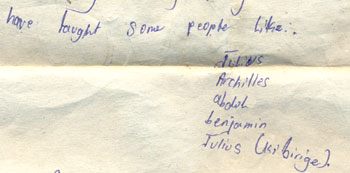 have taught some people like:.
Julius
Archilles
abdah
benjamin
Julius (kibirige).